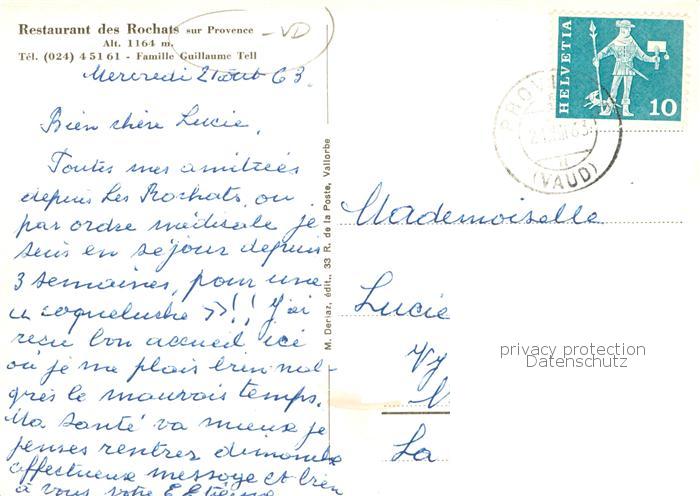 Restaurant des Rochats sur Provence - VD
Alt. 1164 m.
Tél. (024) 4 51 61 - Famille Guillaume Tell
Mercredi 21 août 63.
Bien chère Lucie,
Toutes mes amitiées
depuis Les Rochats, ou
par ordre médicale je
suis en séjour depuis
3 semaines, pour une
« coqueluche »!! J'ai
reçu bon accueil ici
où je me plais bien mal-
grès le mauvais temps.
Ma santé va mieux je
penses rentrer dimanche
affectueux message et bien
à vous votre E. Etienne
M. Deriaz, édit., 33 R. de la Poste, Vallorbe
HELVETIA
10
PROV
(VAUD)
Mademoiselle
Lucie
privacy protection
Datenschutz
La